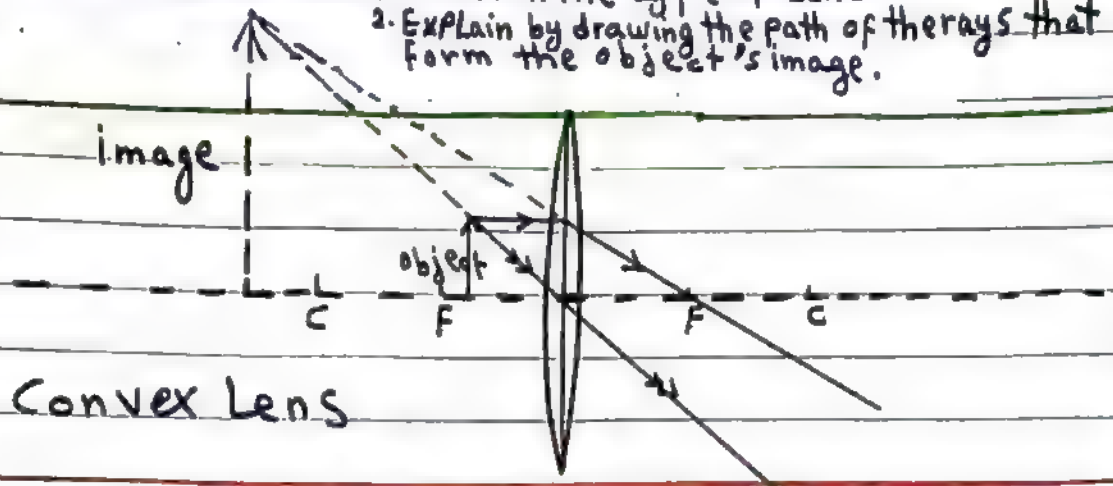 2. Explain by drawing the path of therays that
Form the object's image.
image
object
C
F
F
C
Convex Lens